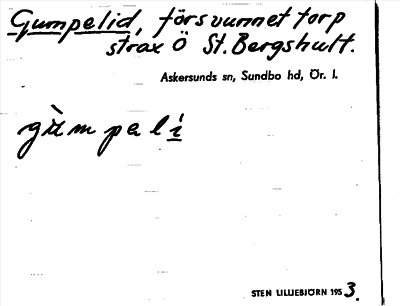 Gumpelid, försvunnet torp
strax Ö St. Bergshult.
Askersunds sn, Sundbo hd, Ör. l.
gùmpeli
STEN LILLIEBJÖRN 1953.